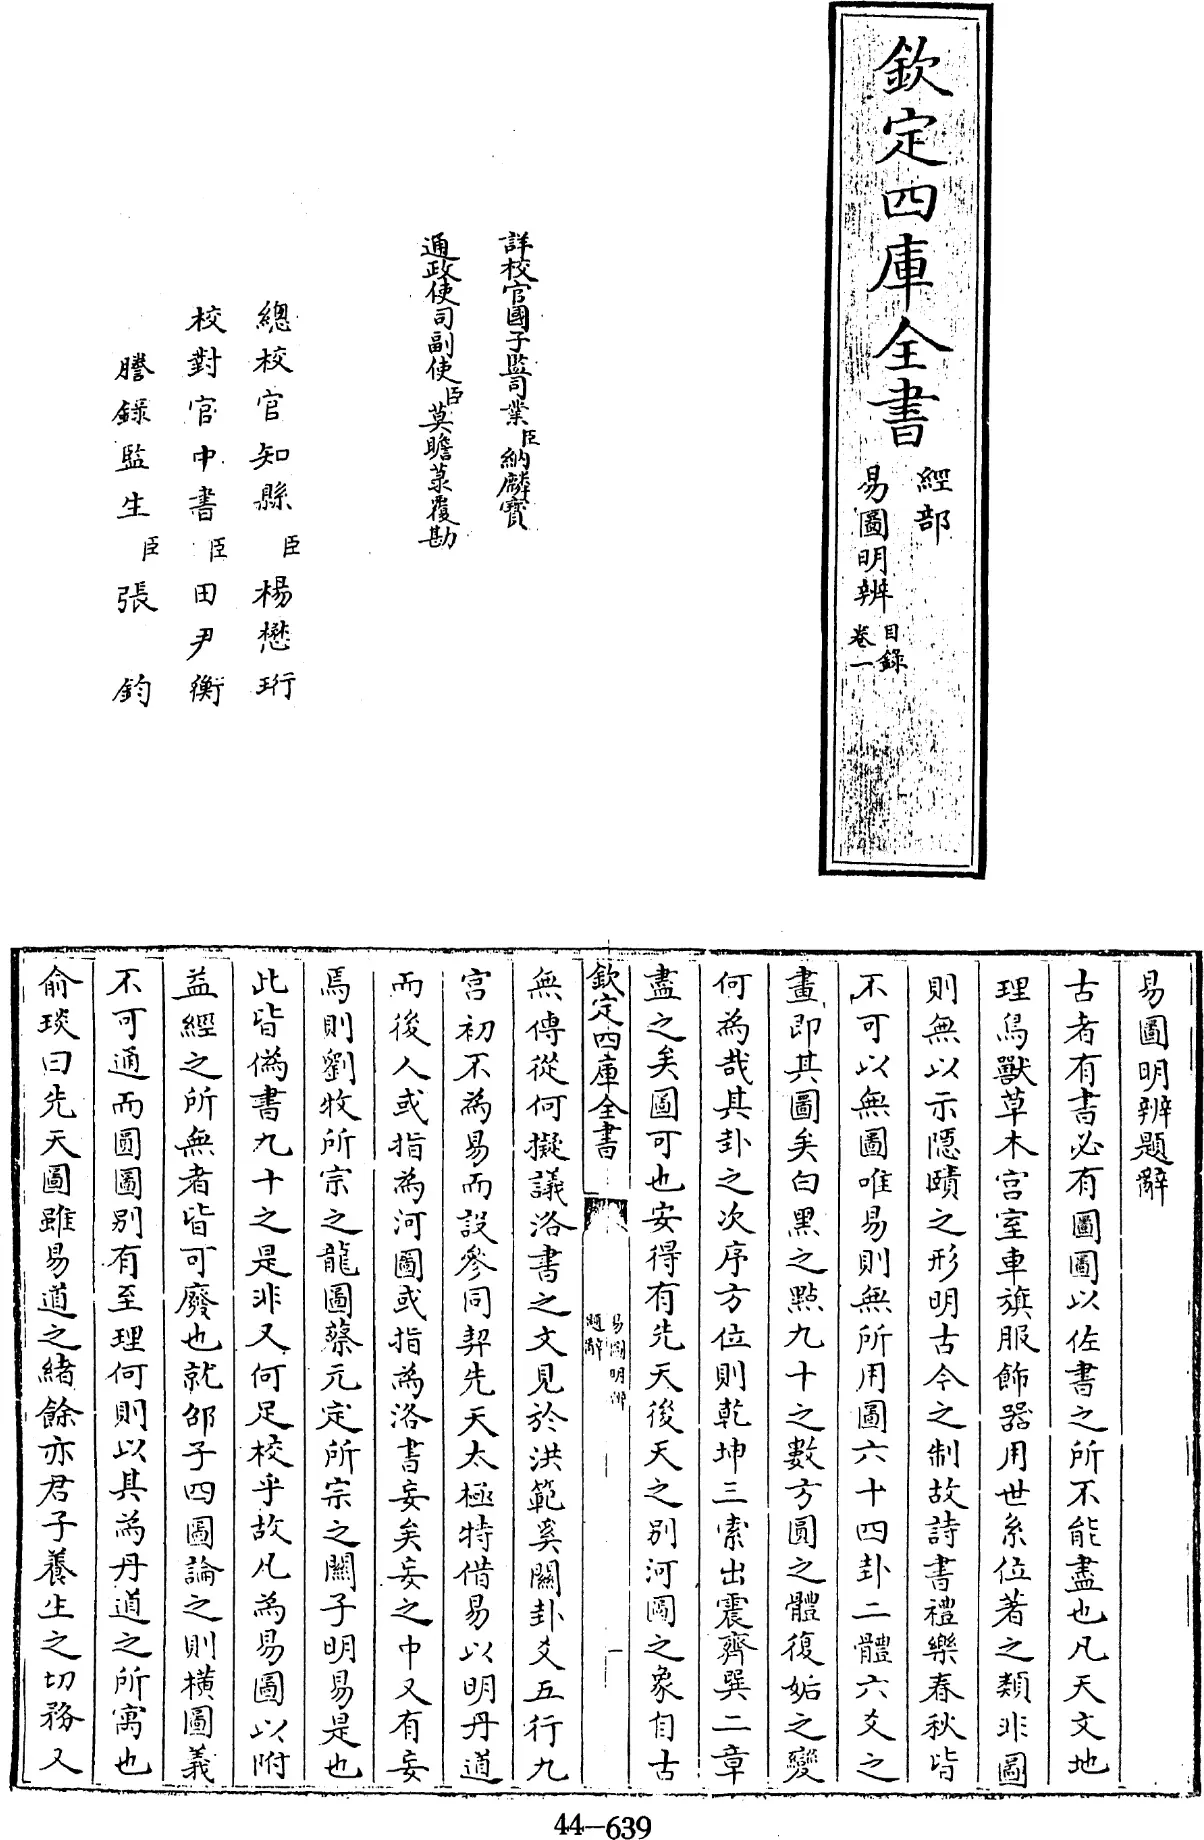 欽定四庫全書
經部
易圖明辨
目錄
卷一
詳校官國子監司業臣納麟寶
通政使司副使臣莫瞻菉覆勘
總校官知縣臣楊懋珩
校對官中書臣田尹衡
謄錄監生臣張鈞
易圖明辨題辭
古者有書必有圖圖以佐書之所不能盡也凡天文地
理鳥獸草木宫室車旗服飾器用世系位著之類非圖
則無以示隱賾之形明古今之制故詩書禮樂春秋皆
不可以無圖唯易則無所用圖六十四卦二體六爻之
畫即其圖矣白黑之點九十之數方圓之體復姤之變
何為哉其卦之次序方位則乾坤三索出震齊巽二章
盡之矣圖可也安得有先天後天之别河圖之象自古
欽定四庫全書
易圖明辨
題辭
一
無傳從何擬議洛書之文見於洪範奚關卦爻五行九
宫初不為易而設參同契先天太極特借易以明丹道
而後人或指為河圖或指為洛書妄矣妄之中又有妄
焉則劉牧所宗之龍圖蔡元定所宗之關子明易是也
此皆僞書九十之是非又何足校乎故凡為易圖以附
益經之所無者皆可廢也就邵子四圖論之則横圖義
不可通而圓圖别有至理何則以其為丹道之所寓也
俞琰曰先天圖雖易道之緒餘亦君子養生之切務又
44-639